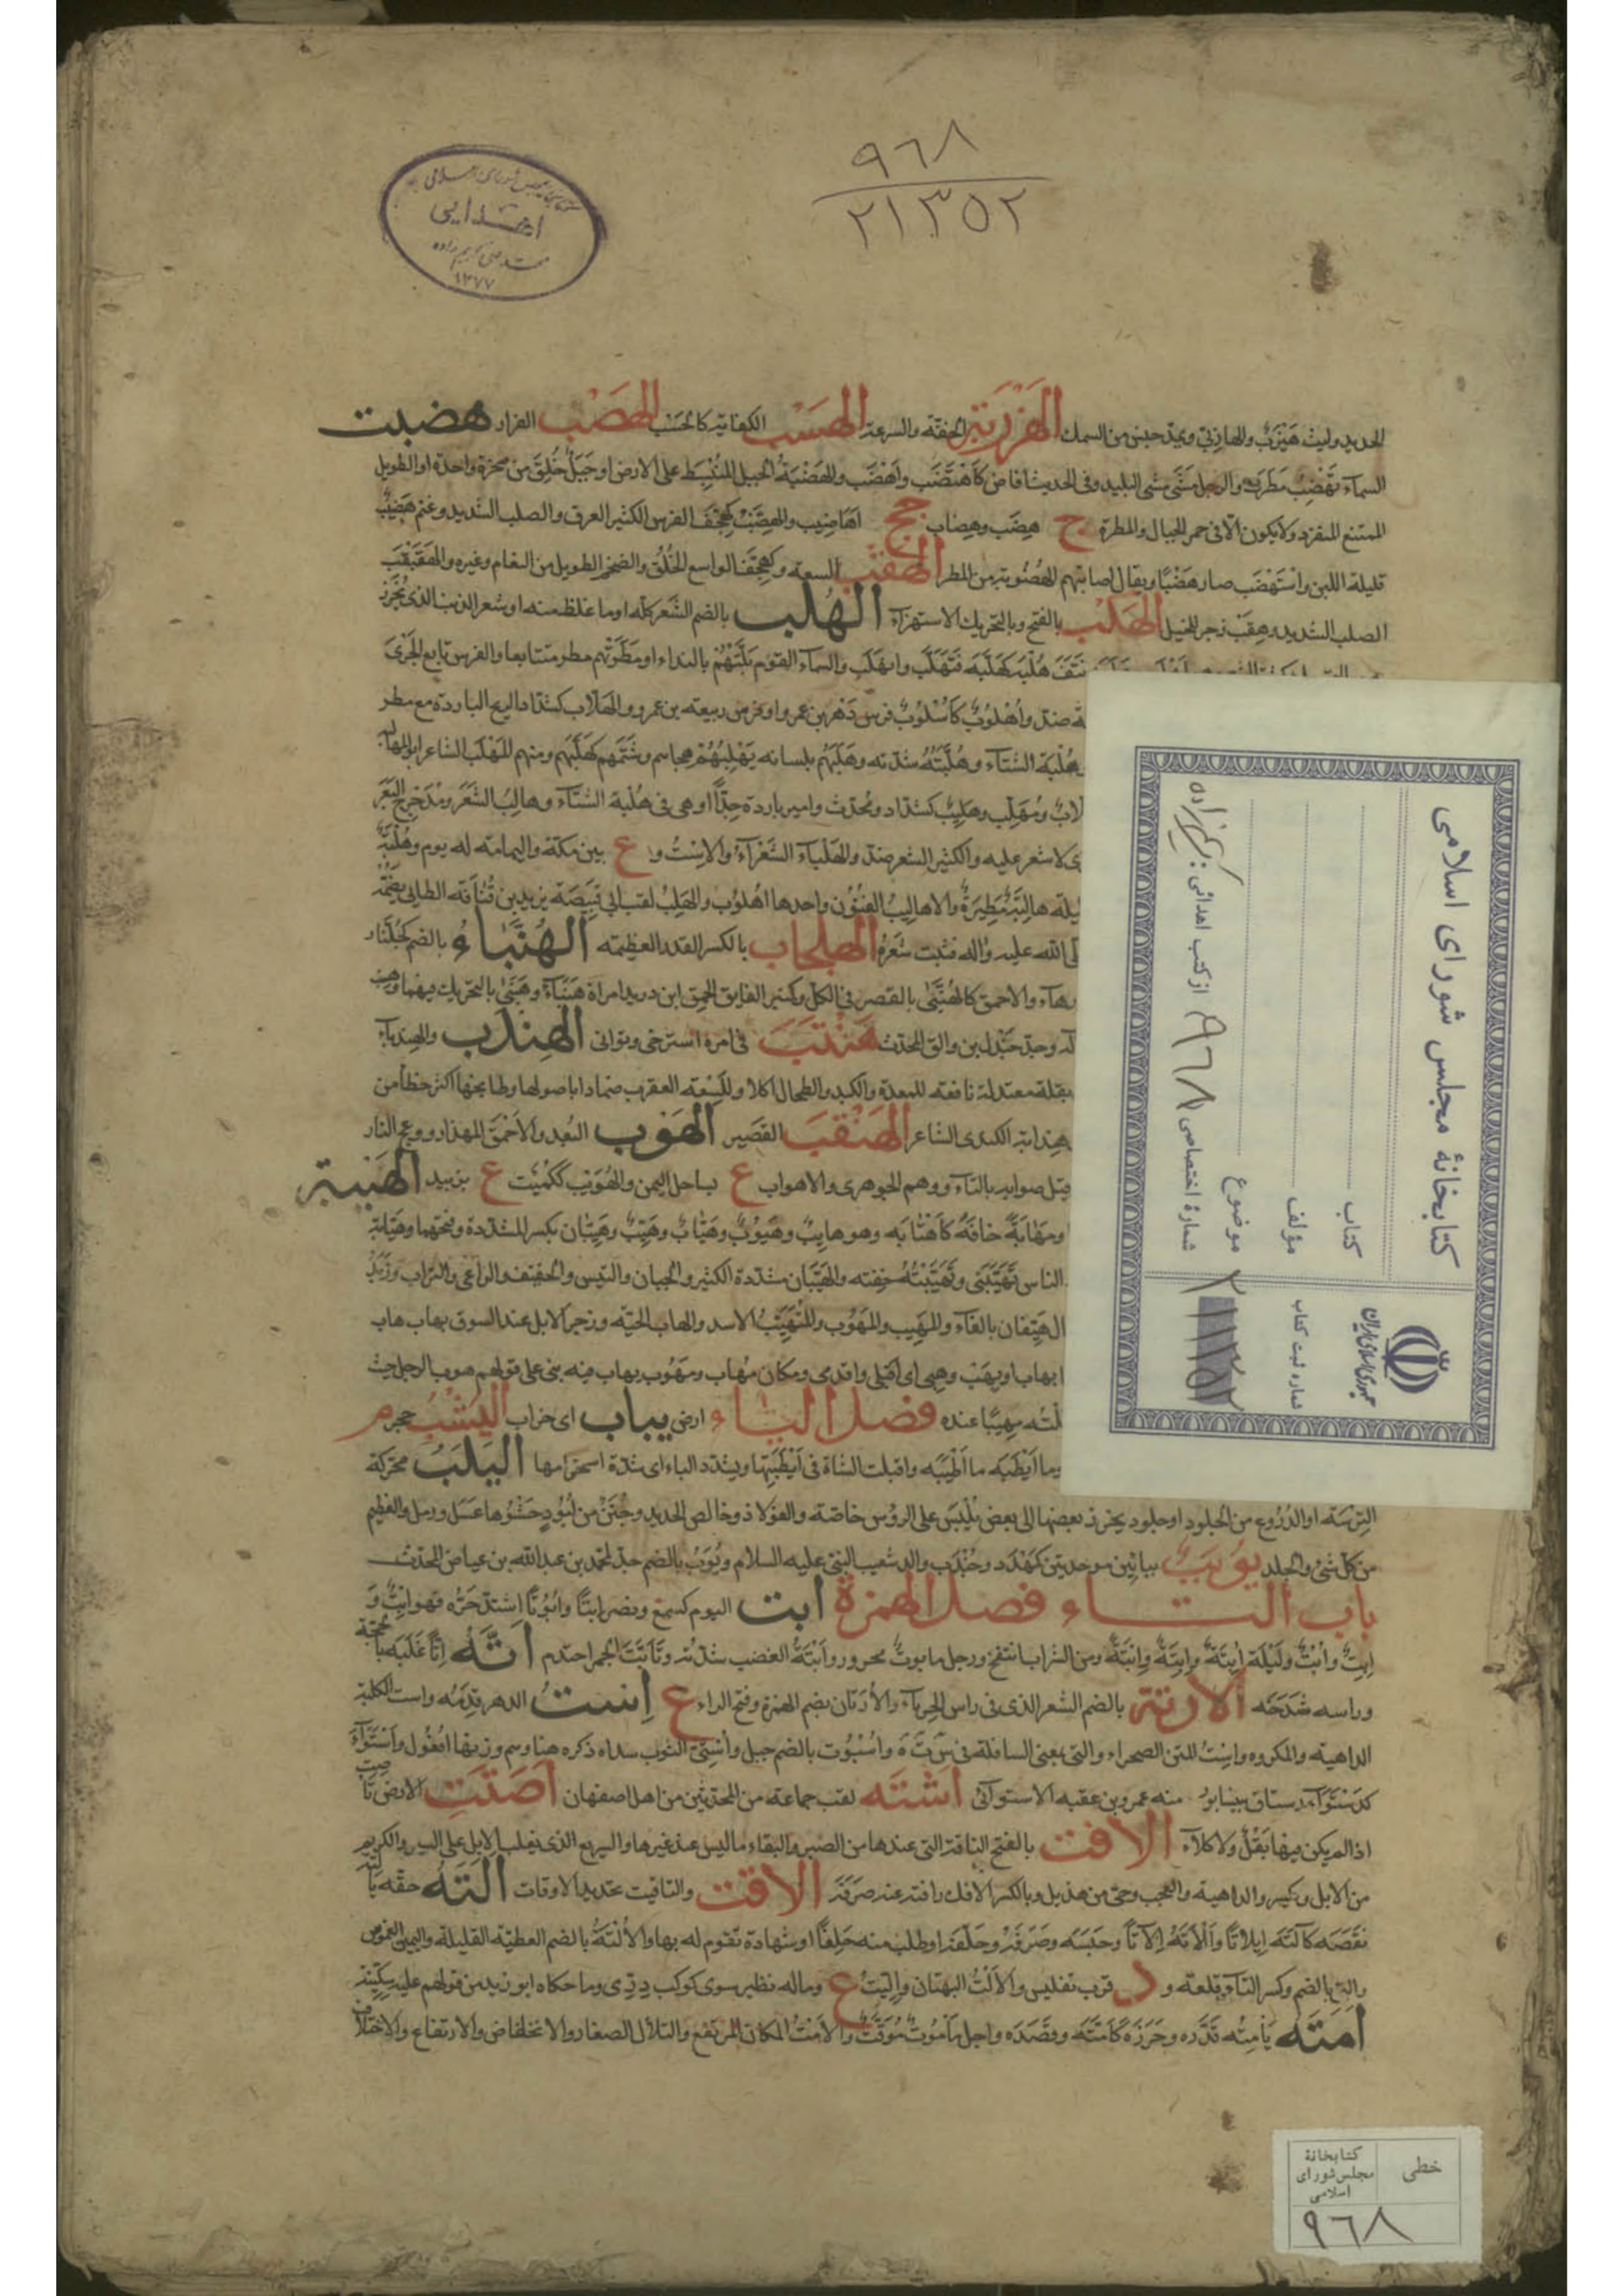 ٩٦٨
٢١٣٥٢
اهدایی
١٣٧٧
الحديد وليث هَيْزَبٌ والهازِبى ويمدّ جنس من السمك الهَزْرَبَة الخفّة والسرعة الهَسْب الكفاية كالحَسْب الهَضْب الفرار هضبت
السماء تَهْضِبُ مَطَرَت والرجل مَشَى مشى البليد وفى الحديث افاض كاَهْتَضَب وأَهْضَب والهَضْبَةُ الجبل المُنْبَسِط على الارض او جَبَلٌ خُلِقَ من صخرة واحدة او الطويل
الممتنع المنفرد ولا يكون الّا فى حمر الجبال والمطرة ج هِضَب وهِضاب جج اهاضيب والهِضَبّ كهِجَفّ الفرس الكثير العرق والصلب الشديد وغنم هَضِيب
قليلة اللبن واسْتَهْضَب صار هَضْبًا ويقال اصابتهم اهضوبة من المطر الهقب السعة وكهِجَفّ الواسع الحَلْق والضخم الطويل من النعام وغيره والهَقَبْقَب
الصلب الشديد وهِقَبْ زجر للخيل الهكب بالفتح وبالتحريك الاستهزاء الهُلب بالضم الشَعَر كله او ما غلظ منه او شعر الذنب الذى يُخْرَز
نَتَفَ هُلْبَه كهَلَّبَه فتَهَلَّب وانهَلَب والسماء القوم بَلَّتْهُم بالنداء او مَطَرَتْهم مطر متتابعا والفرس تابع الجَرْىَ
ضدّ وأُهْلوبٌ كأُسْلوب فرس دَهْر بن عمرو او فرس ربيعة بن عمرو والهَلّاب كشدّاد الريح الباردة مع مطر
هُلْبَة الشتاء وهُلُبّتُه شدته وهَلَبَهُم بلسانه يَهْلِبُهُم هجاهم وشَتَمَهم كهَلَّبَهم ومنهم المُهَلَّب الشاعر ابو المهالبة
ومُهَلِّب وهَلِيب كشدّاد ومُحَدِّث وامير باردة جدّا او هى فى هُلْبة الشتاء وهالِبُ الشَعَر ومُدَحْرِج البَعَر
لا شعر عليه والكثير الشعر ضدّ والهَلْباء الشَعْراء والاسْتُ و ع بين مكة واليمامة له يوم وهُلْبَةٌ
ليلة هالِبَة مَطِيرَة والاهاليبُ الفنون واحدها اهْلوب والهَلِبُ لقب ابى قَبِيصَة يزيد بن قُنَافَة الطائى بضمّة
الله عليه وآله فنبت شَعَرُه الهلجاب بالكسر القدر العظيمة الهُنَّباءُ بالضم كجُلَّنار
والاحمق كالهُنَّبَى بالقصر فى الكل وكمنبر الفايق الحمق ابن دريد امراة هَنْباء وهَنَبَى بالتحريك فيهما
وجدّ جَنْدَل بن والق المحدّث هَنْتَبَ فى امره استرخى وتوانى الهِندَب والهِندباء
بقلة معتدلة نافعة للمعدة والكبد والطحال اكلا وللَسْعة العقرب ضمادا باصولها وطابخها اكثر خطأ من
الكندى الشاعر الهَنْقَبَ القصير الهَوْب البُعد والأحمق المهذار ووهج النار
قيل صوابه بالتاء ووهم الجوهرى والاهواب ع بساحل اليمن والهُوَيْب ككُمَيْت ع بزبيد الهَيْبة
ومَهابَةً خافَهُ كاَهْتابَه وهو هايِبٌ وهَيُوبٌ وهَيّابٌ وهَيِّبٌ وهَيِّبان بكسر المشددة وفتحها وهَيّابة
الناس تَهَيَّبَنى وتَهَيَّبْتُه خِفته والهَيَّبان مشددة الكثير والجبان والتيس والخفيف والراعى والتراب وزَبَدُ
الهَيِّفان بالفاء والمَهِيب والمَهُوب والمُتَهَيَّبُ الاسد والهاب الحيّة وزجر الابل عند السوق بهاب هاب
اهاب اوبهَب وهيبى اى اقبلى واقدمى ومكان مُهاب ومَهُوب يهاب فيه بنى على قولهم هوب الرجل حيث
مهيبًا عنده فصل الياء ارض يباب اى خراب اليَشْب حجر م
وما اَيْطَبَه ما اَطْيَبَه واقبلت الشاة فى اَيْطَبَتِها ويشدّد الباء اى شدّة استحرامها اليَلَبُ محرّكة
التِرَسَة او الدُرُوع من الجلود او جلود يخرز بعضها الى بعض تُلْبَس على الرؤس خاصة والفولاذ وخالص الحديد وجُنَنٌ من لُبُودٍ حَشْوُها عَسَل ورمل والعظيم
من كل شئ والجلد يوبب بباءَين موحدتين كمَهْدَد وجُنْدَب والد شعيب النبى عليه السلام ويُوَبُ بالضم جدّ لمحمد بن عبد الله بن عياض المحدّث
باب التاء فصل الهمزة ابت اليوم كسمع ونصر اَبْتًا واُبُوتًا اشتدّ حَرُّه فهو اَبِتٌ وَ
اَبِتٌ وأَبْتٌ ولَيْلَة اٰبِتَةٌ وأَبِتَةٌ واَبْتَةٌ ومن الشراب انتفخ ورجل مابوتٌ محرور واَبْتَةُ الغضب شدّته وتَأَبَّتَ الجمر احتدم اَتَّهُ اتًّا غَلَبَه بالحجّة
وراسه شَدَخَه الأُرْتَة بالضم الشعر الذى فى راس الحِرباء والأُرَتان بضم الهمزة وفتح الراء ع اِستُ الدهر قِدَمُه واست الكلبة
الداهية والمكروه واِسْتُ المتن الصحراء والتى بمعنى السافلة فى س ت ه واُسْبُوت بالضم جبل واُسْتِىُّ الثوب سداه ذكره هنا وهم وزنها اُفْعُول واَسْتَواء
كدَسْتَواء رستاق بنيسابور منه عمرو بن عقبة الاستوائى اُشْتَه لقب جماعة من المحدّثين من اهل اصفهان اَصَتَتِ الارض تَأصِت
اذا لم يكن فيها بَقْلٌ ولا كلاء الأفت بالفتح الناقة التى عندها من الصبر والبقاء ما ليس عند غيرها والسريع الذى يغلب الابل على السير والكريم
من الابل ويكسر والداهية والعجب وحىّ من هذيل وبالكسر الافك رافته عنه صرفه الأقت والتاقيت تحديد الاوقات اَلَتَهُ حقّه يَألِتُه
نَقَصَه كاَلَتَه ايلاتًا واَلاتَهُ اِلاتًا وحَبَسَه وصَرَفَه وحَلَّفَه او طلب منه حَلِفًا او شهادة تقوم له بها والأُلْتَةُ بالضم العطيّة القليلة واليمين الغموس
واُلْتى بالضم وكسر التاء قلعة و د قرب تفليس والأَلْتُ البهتان واِلِّيت ع وماله نظير سوى كوكب دِرّى وما حكاه ابو زيد من قولهم عليه سِكّينة
اَمَتَه يَأمِتُه قَدَّره وحَزَرَه كاَمَّتَه وقَصَدَه واجل مَأمُوتٌ مُوَقَّتٌ والأَمْتُ المكان المرتفع والتلال الصغار والانخفاض والارتفاع والاختلاف
کتابخانهٔ مجلس شورای اسلامی
کتاب
مؤلف
موضوع
از کتب اهدائی: کریم‌زاده
شمارهٔ اختصاصی ٩٦٨
جمهوری اسلامی ایران
شماره ثبت کتاب
٢١٣٥٢
خطی
کتابخانهٔ
مجلس شورای
اسلامی
٩٦٨